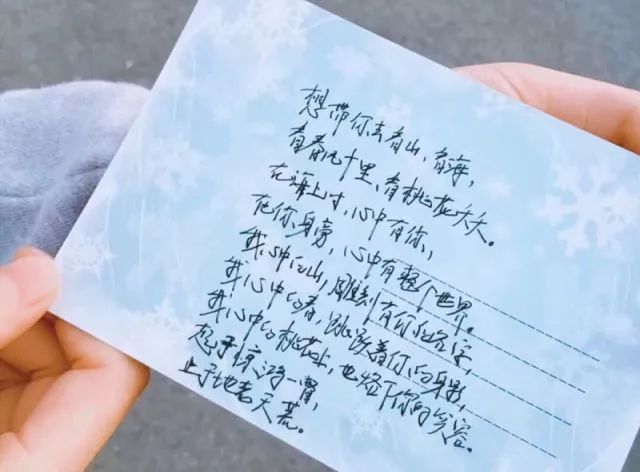 想带你去看山、看海,
看春风十里、看桃花夭夭。
在海上时,心中有你,
在你身旁,心中有整个世界。
我心中的山,雕刻有你的名字,
我心中的春,跳跃着你的身影,
我心中的桃花上,也烙下你的笑容。
起于惊鸿一瞥,
止于地老天荒。